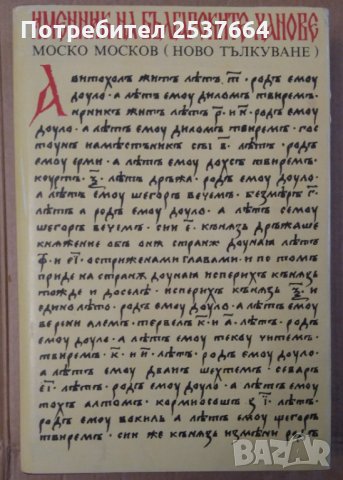 Потребител 2537664
ИМЕННИК НА БЪЛГАРСКИТЕ ХАНОВЕ
МОСКО МОСКОВ ( НОВО ТЪЛКУВАНЕ )
Авитохолъ житъ лѣтъ. т҃. родъ емоу
доуло. а лѣтъ емоу диломъ твиремъ.
ирникъ житъ лѣтъ р҃. и н҃. родъ емоу
доуло. а лѣтъ емоу диломъ твиремъ. гос
тоунъ намѣстьникъ съі в҃. лѣтъ. родъ
емоу ерми. а лѣтъ емоу дохсъ твиремъ.
коуртъ. ѯ҃. лѣтъ дръжа. родъ емоу доуло.
а лѣтъ емоу шегоръ вечемъ. безмѣръ г҃.
лѣтъ а родъ емоу доуло. а лѣтъ семоу
шегоръ вечемъ. сии е҃. кънязь дръжаше
княжение объ онъ странъ доуная лѣтъ
ф҃. и е҃і. остриженами главами. и по томъ
приде на странъ доуная исперихъ кънязь
тожде и доселѣ. исперихъ кънязь ѯ҃. и
едино лѣто. родъ емоу доуло. а лѣтъ емоу
верени алемъ. тервелъ к҃. и а҃. лѣтъ. родъ
емоу доуло. а лѣтъ емоу текоу читемъ.
твиремъ. к҃. и и҃. лѣтъ. родъ емоу доуло.
а лѣтъ емоу дванъ шехтемъ. севаръ
е҃і. лѣтъ. родъ емоу доуло. а лѣтъ емоу
тохъ алтомъ. кормисошъ з҃і. лѣтъ.
родъ емоу вокиль а лѣтъ емоу шегоръ
твиремъ. сии же кънязь измѣни родъ
BAZAR